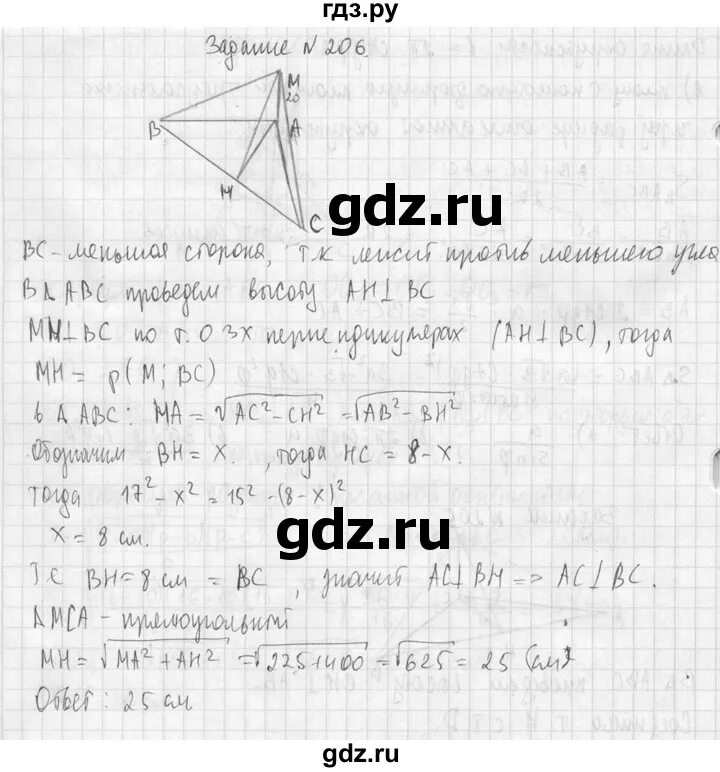 гдз.ру
Задание N 206
M
20
B
A
H
C
BC - меньшая сторона, т.к лежит против меньшего угла
В Δ ABC проведем высоту AH⊥BC
MH⊥BC по т. о 3х перпендикулерах (AH⊥BC), тогда
MH = ρ(M; BC)
в Δ ABC: MA = √AC²-CH² = √AB²-BH²
Обозначим BH = x. , тогда HC = 8-x.
Тогда 17²-x² = 15²-(8-x)²
x = 8 см.
Т.С BH=8 см = BC , значит AC⊥BH => AC⊥BC.
ΔMCA - прямоугольный
MH = √MA²+AH² = √225+400 = √625 = 25 (см)
Ответ: 25 см
gdz.ru
gdz.ru
gdz.ru
gdz.ru